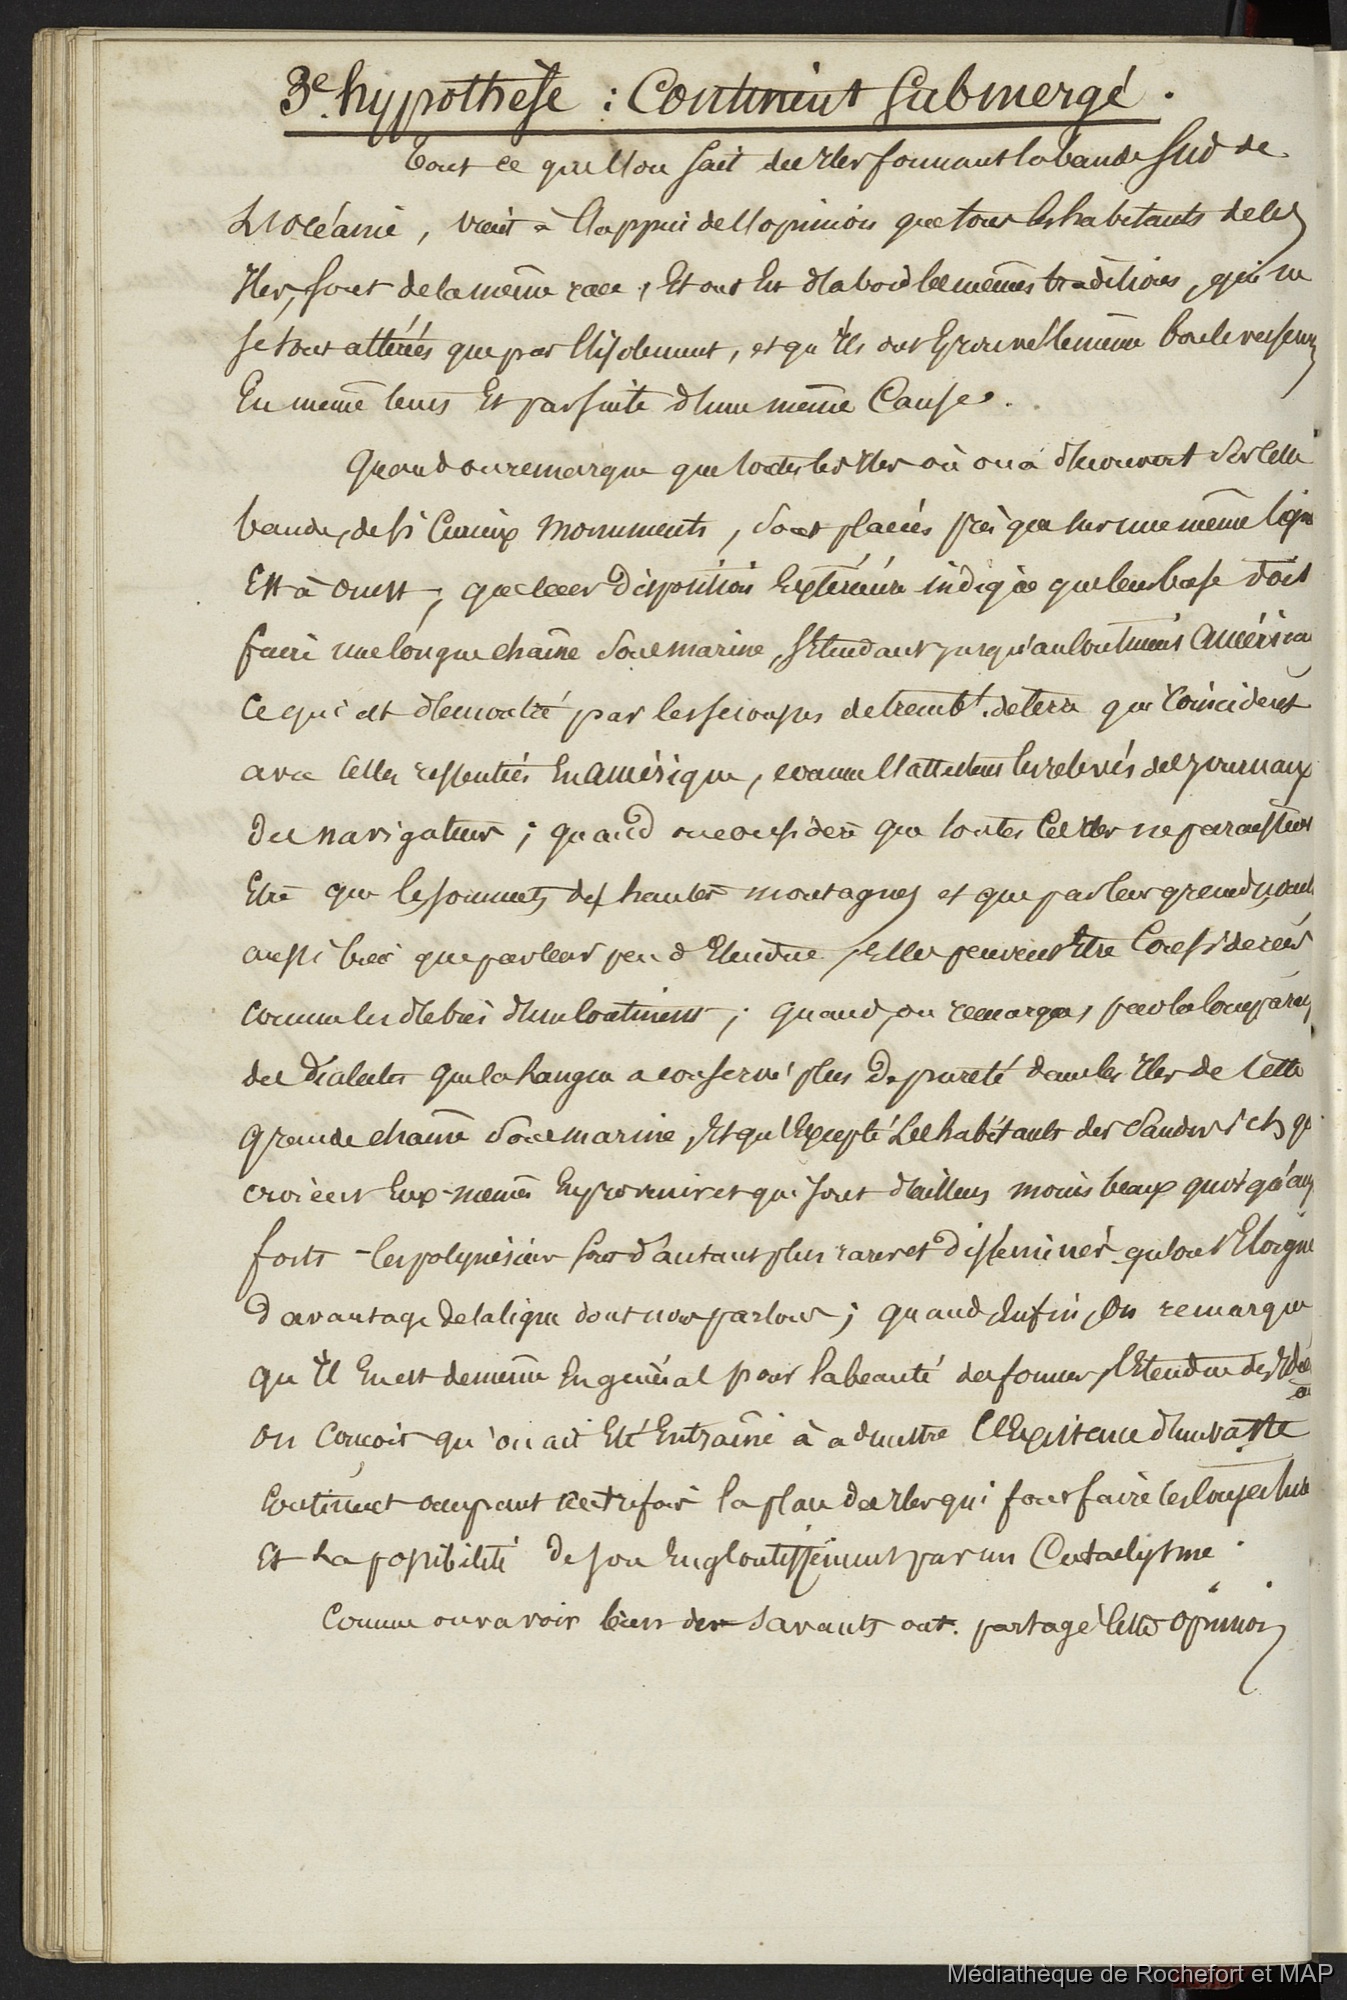 3e. hypothèse : Continent Submergé.
Tout ce que l'on sait des Iles formant la bande Sud de
L'océanie, vient à l'appui de l'opinion que tous les habitants de ces
Iles, sont de la même race, Et ont Eu d'abord les mêmes traditions, qui ne
se sont altérées que par l'isolement, et qu'Ils ont Eprouvé le même bouleversement
En même tems Et par suite d'une même Cause.
Quand on remarque que toutes les Iles où on a découvert sur cette
bande, de si Curieux Monuments, sont placées presque sur une même ligne
Est à ouest, que leur Disposition Extérieure indique que leur base doit
faire une longue chaîne sous marine, S'Etendant jusqu'au continent Américain
Ce qui est démontré par les secousses de trembt. de terre qui Coincident
avec Celles ressenties En Amérique, comme l'attestent les relevés des journaux
Des navigateurs ; quand on considère que toutes Ces Iles ne paraissent
Etre que les sommets de hautes montagnes et que par leur grand nombre
aussi bien que par leur peu d'Etendue, Elles peuvent Etre Considerées
Comme les débris d'un Continent ; quand, on remarque, par la comparaison
des Dialectes que la Langue a conservé plus De pureté dans les Iles de Cette
Grande chaîne sous marine, Et qu'Excepté Les habitants des Sandwich, qui
croient Eux-mêmes En provenir et qui sont d'ailleurs moins beaux quoi qu'aussi
forts - les polynésiens sont d'autant plus rares et Disséminés qu'on s'Eloigne
D'avantage De la ligne dont nous parlons ; quand Enfin, On remarque
qu'Il En est de même En général pour la beauté des formes, l'Etendue des Idées &a
On Conçoit qu'on ait Eté Entraîné à admettre l'Existence d'un vaste
Continent occupant autrefois la place des Iles qui font faire ces Conjectures
Et La possibilité De son Engloutissement par un Cataclysme.
Comme on va voir bien des Savants ont partagé Cette Opinion
Médiathèque de Rochefort et MAP